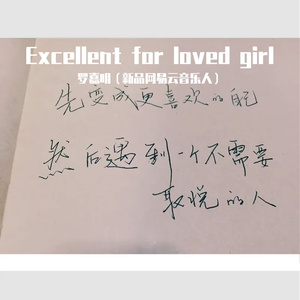 Excellent for loved girl
罗嘉明（新品网易云音乐人）
先变成更喜欢的自己
然后遇到一个不需要
取悦的人